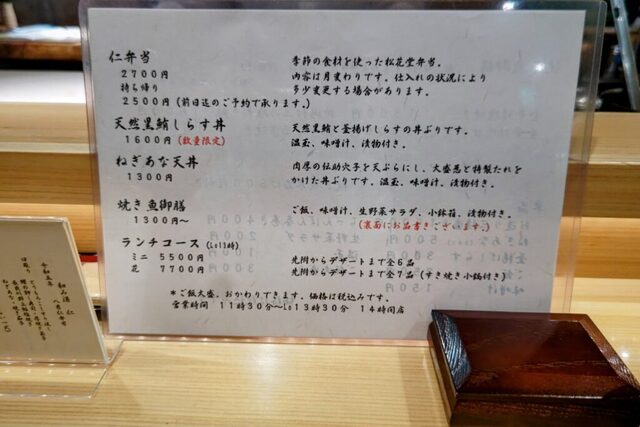 仁弁当
季節の食材を使った松花堂弁当。
2700円
内容は月変わりです。仕入れの状況により
持ち帰り
多少変更する場合があります。
2500円（前日迄のご予約で承ります。）
天然黒鮪しらす丼
天然黒鮪と釜揚げしらすの丼ぶりです。
1600円（数量限定）
温玉、味噌汁、漬物付き。
ねぎあな天丼
肉厚の伝助穴子を天ぷらにし、大盛葱と特製たれを
1300円
かけた丼ぶりです。温玉、味噌汁、漬物付き。
焼き魚御膳
ご飯、味噌汁、生野菜サラダ、小鉢箱、漬物付き。
1300円～
（裏面にお品書きございます。）
ランチコース（Lo13時）
ミニ 5500円
先附からデザートまで全6品
花 7700円
先附からデザートまで全7品（すき焼き小鍋付き）
＊ご飯大盛、おかわりできます。価格は税込みです。
営業時間 11時30分～Lo13時30分 14時閉店